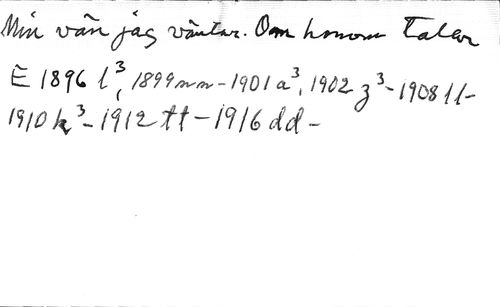 Min vän jag väntar. Om honom talar
E 1896 l³, 1899 mm - 1901 a³, 1902 z³ - 1908 ll -
1910 k³ - 1912 tt - 1916 dd -